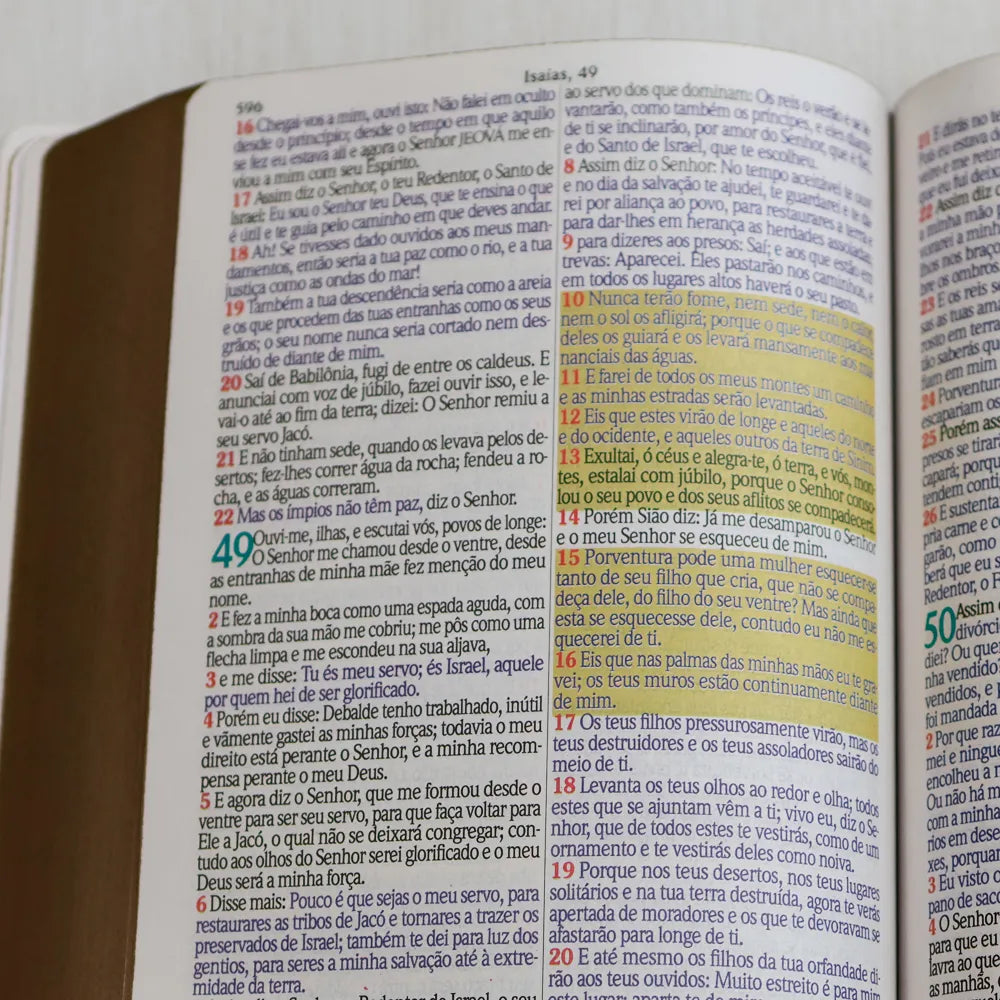 596
Isaías, 49
16 Chegai-vos a mim, ouvi isto: Não falei em oculto
desde o princípio; desde o tempo em que aquilo
se fez eu estava ali e agora o Senhor JEOVÁ me en-
viou a mim com seu Espírito.
17 Assim diz o Senhor, o teu Redentor, o Santo de
Israel: Eu sou o Senhor teu Deus, que te ensina o que
é útil e te guia pelo caminho em que deves andar.
18 Ah! Se tivesses dado ouvidos aos meus man-
damentos, então seria a tua paz como o rio, e a tua
justiça como as ondas do mar!
19 Também a tua descendência seria como a areia
e os que procedem das tuas entranhas como os seus
grãos; o seu nome nunca seria cortado nem des-
truído de diante de mim.
20 Saí de Babilônia, fugi de entre os caldeus. E
anunciai com voz de júbilo, fazei ouvir isso, e le-
vai-o até ao fim da terra; dizei: O Senhor remiu a
seu servo Jacó.
21 E não tinham sede, quando os levava pelos de-
sertos; fez-lhes correr água da rocha; fendeu a ro-
cha, e as águas correram.
22 Mas os ímpios não têm paz, diz o Senhor.
49 Ouvi-me, ilhas, e escutai vós, povos de longe:
O Senhor me chamou desde o ventre, desde
as entranhas de minha mãe fez menção do meu
nome.
2 E fez a minha boca como uma espada aguda, com
a sombra da sua mão me cobriu; me pôs como uma
flecha limpa e me escondeu na sua aljava,
3 e me disse: Tu és meu servo; és Israel, aquele
por quem hei de ser glorificado.
4 Porém eu disse: Debalde tenho trabalhado, inútil
e vãmente gastei as minhas forças; todavia o meu
direito está perante o Senhor, e a minha recom-
pensa perante o meu Deus.
5 E agora diz o Senhor, que me formou desde o
ventre para ser seu servo, para que faça voltar para
Ele a Jacó, o qual não se deixará congregar; con-
tudo aos olhos do Senhor serei glorificado e o meu
Deus será a minha força.
6 Disse mais: Pouco é que sejas o meu servo, para
restaurares as tribos de Jacó e tornares a trazer os
preservados de Israel; também te dei para luz dos
gentios, para seres a minha salvação até à extre-
midade da terra.
Redentor de Israel, o seu
ao servo dos que dominam: Os reis o verão e se le-
vantarão, como também os príncipes, e eles diante
de ti se inclinarão, por amor do Senhor, que é fiel,
e do Santo de Israel, que te escolheu.
8 Assim diz o Senhor: No tempo aceitável te ouvi
e no dia da salvação te ajudei, te guardarei e te da-
rei por aliança ao povo, para restaurares a terra e
para dar-lhes em herança as herdades assoladas,
9 para dizeres aos presos: Saí; e aos que estão em
trevas: Aparecei. Eles pastarão nos caminhos, e
em todos os lugares altos haverá o seu pasto.
10 Nunca terão fome, nem sede, nem o calor
nem o sol os afligirá; porque o que se compadece
deles os guiará e os levará mansamente aos ma-
nanciais das águas.
11 E farei de todos os meus montes um caminho
e as minhas estradas serão levantadas.
12 Eis que estes virão de longe e aqueles do norte
e do ocidente, e aqueles outros da terra de Sinim.
13 Exultai, ó céus e alegra-te, ó terra, e vós, mon-
tes, estalai com júbilo, porque o Senhor conso-
lou o seu povo e dos seus aflitos se compadecerá.
14 Porém Sião diz: Já me desamparou o Senhor
e o meu Senhor se esqueceu de mim.
15 Porventura pode uma mulher esquecer-se
tanto de seu filho que cria, que não se compa-
deça dele, do filho do seu ventre? Mas ainda que
esta se esquecesse dele, contudo eu não me es-
quecerei de ti.
16 Eis que nas palmas das minhas mãos eu te gra-
vei; os teus muros estão continuamente diante
de mim.
17 Os teus filhos pressurosamente virão, mas os
teus destruidores e os teus assoladores sairão do
meio de ti.
18 Levanta os teus olhos ao redor e olha; todos
estes que se ajuntam vêm a ti; vivo eu, diz o Se-
nhor, que de todos estes te vestirás, como de um
ornamento e te vestirás deles como noiva.
19 Porque nos teus desertos, nos teus lugares
solitários e na tua terra destruída, agora te verás
apertada de moradores e os que te devoravam se
afastarão para longe de ti.
20 E até mesmo os filhos da tua orfandade di-
rão aos teus ouvidos: Muito estreito é para mim
este lugar; aparta-te de mim
21 E dirás no
Pois eu estava
22 Assim diz o
a minha mão
lhos nos braço
bre os ombros
23 E os reis s
sas as tuas am
rosto em terra
rão saberás qu
fiam em mim
24 Porventura
escapariam os
25 Porém ass
presos se tirar
capará; porqu
tendem conti
26 E sustenta
pria carne e c
garão, como
berá que eu s
Redentor, o F
50 Assim
divórci
diei? Ou que
nha vendido,
vendidos, e
foi mandada
2 Por que raz
mei e ningue
encolheu a m
Ou não há m
com a minha
rios em dese
xes, porquan
3 Eu visto o
pano de sac
4 O Senhor
para que eu
lavra ao que
as manhãs,